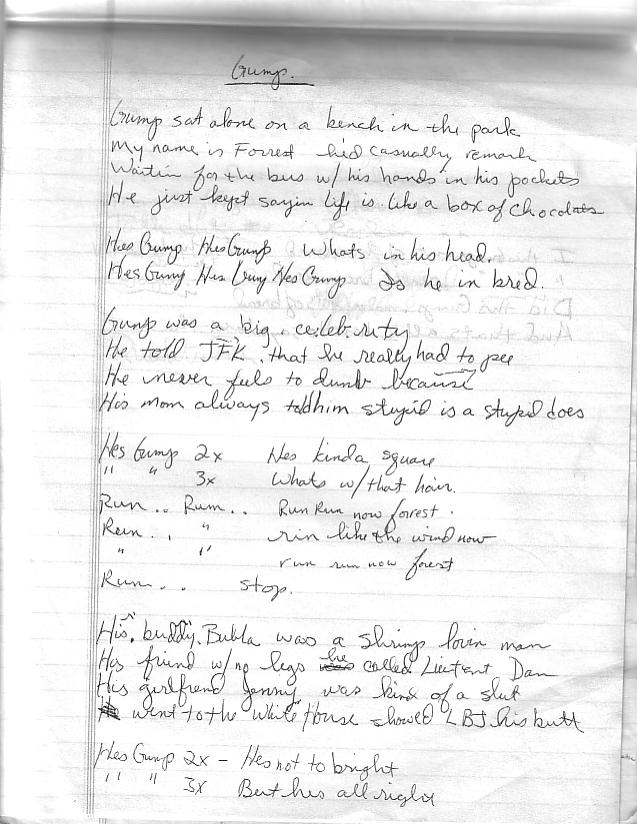 Gump.
Gump sat alone on a bench in the park
My name is Forrest he'd casually remark
Waitin for the bus w/ his hands in his pockets
He just kept sayin life is like a box of chocolats
Hes Gump Hes Gump Whats in his head.
Hes Gump Hes Gump Hes Gump Is he in bred.
Gump was a big celebrity
He told JFK that he really had to pee
He never feels to dumb because
His mom always told him stupid is a stupid does
Hes Gump 2x Hes kinda square
" " 3x Whats w/ that hair.
Run .. Run .. Run Run now forrest.
Run .. " run like the wind now
" " run run now forest
Run .. stop.
His buddy Bubba was a shrimp lovin man
His friend w/ no legs he called Lieutent Dan
His girlfriend Jenny was kind of a slut
went to the White House showed LBJ his butt
Hes Gump 2x - Hes not to bright
" " 3x But hes all right